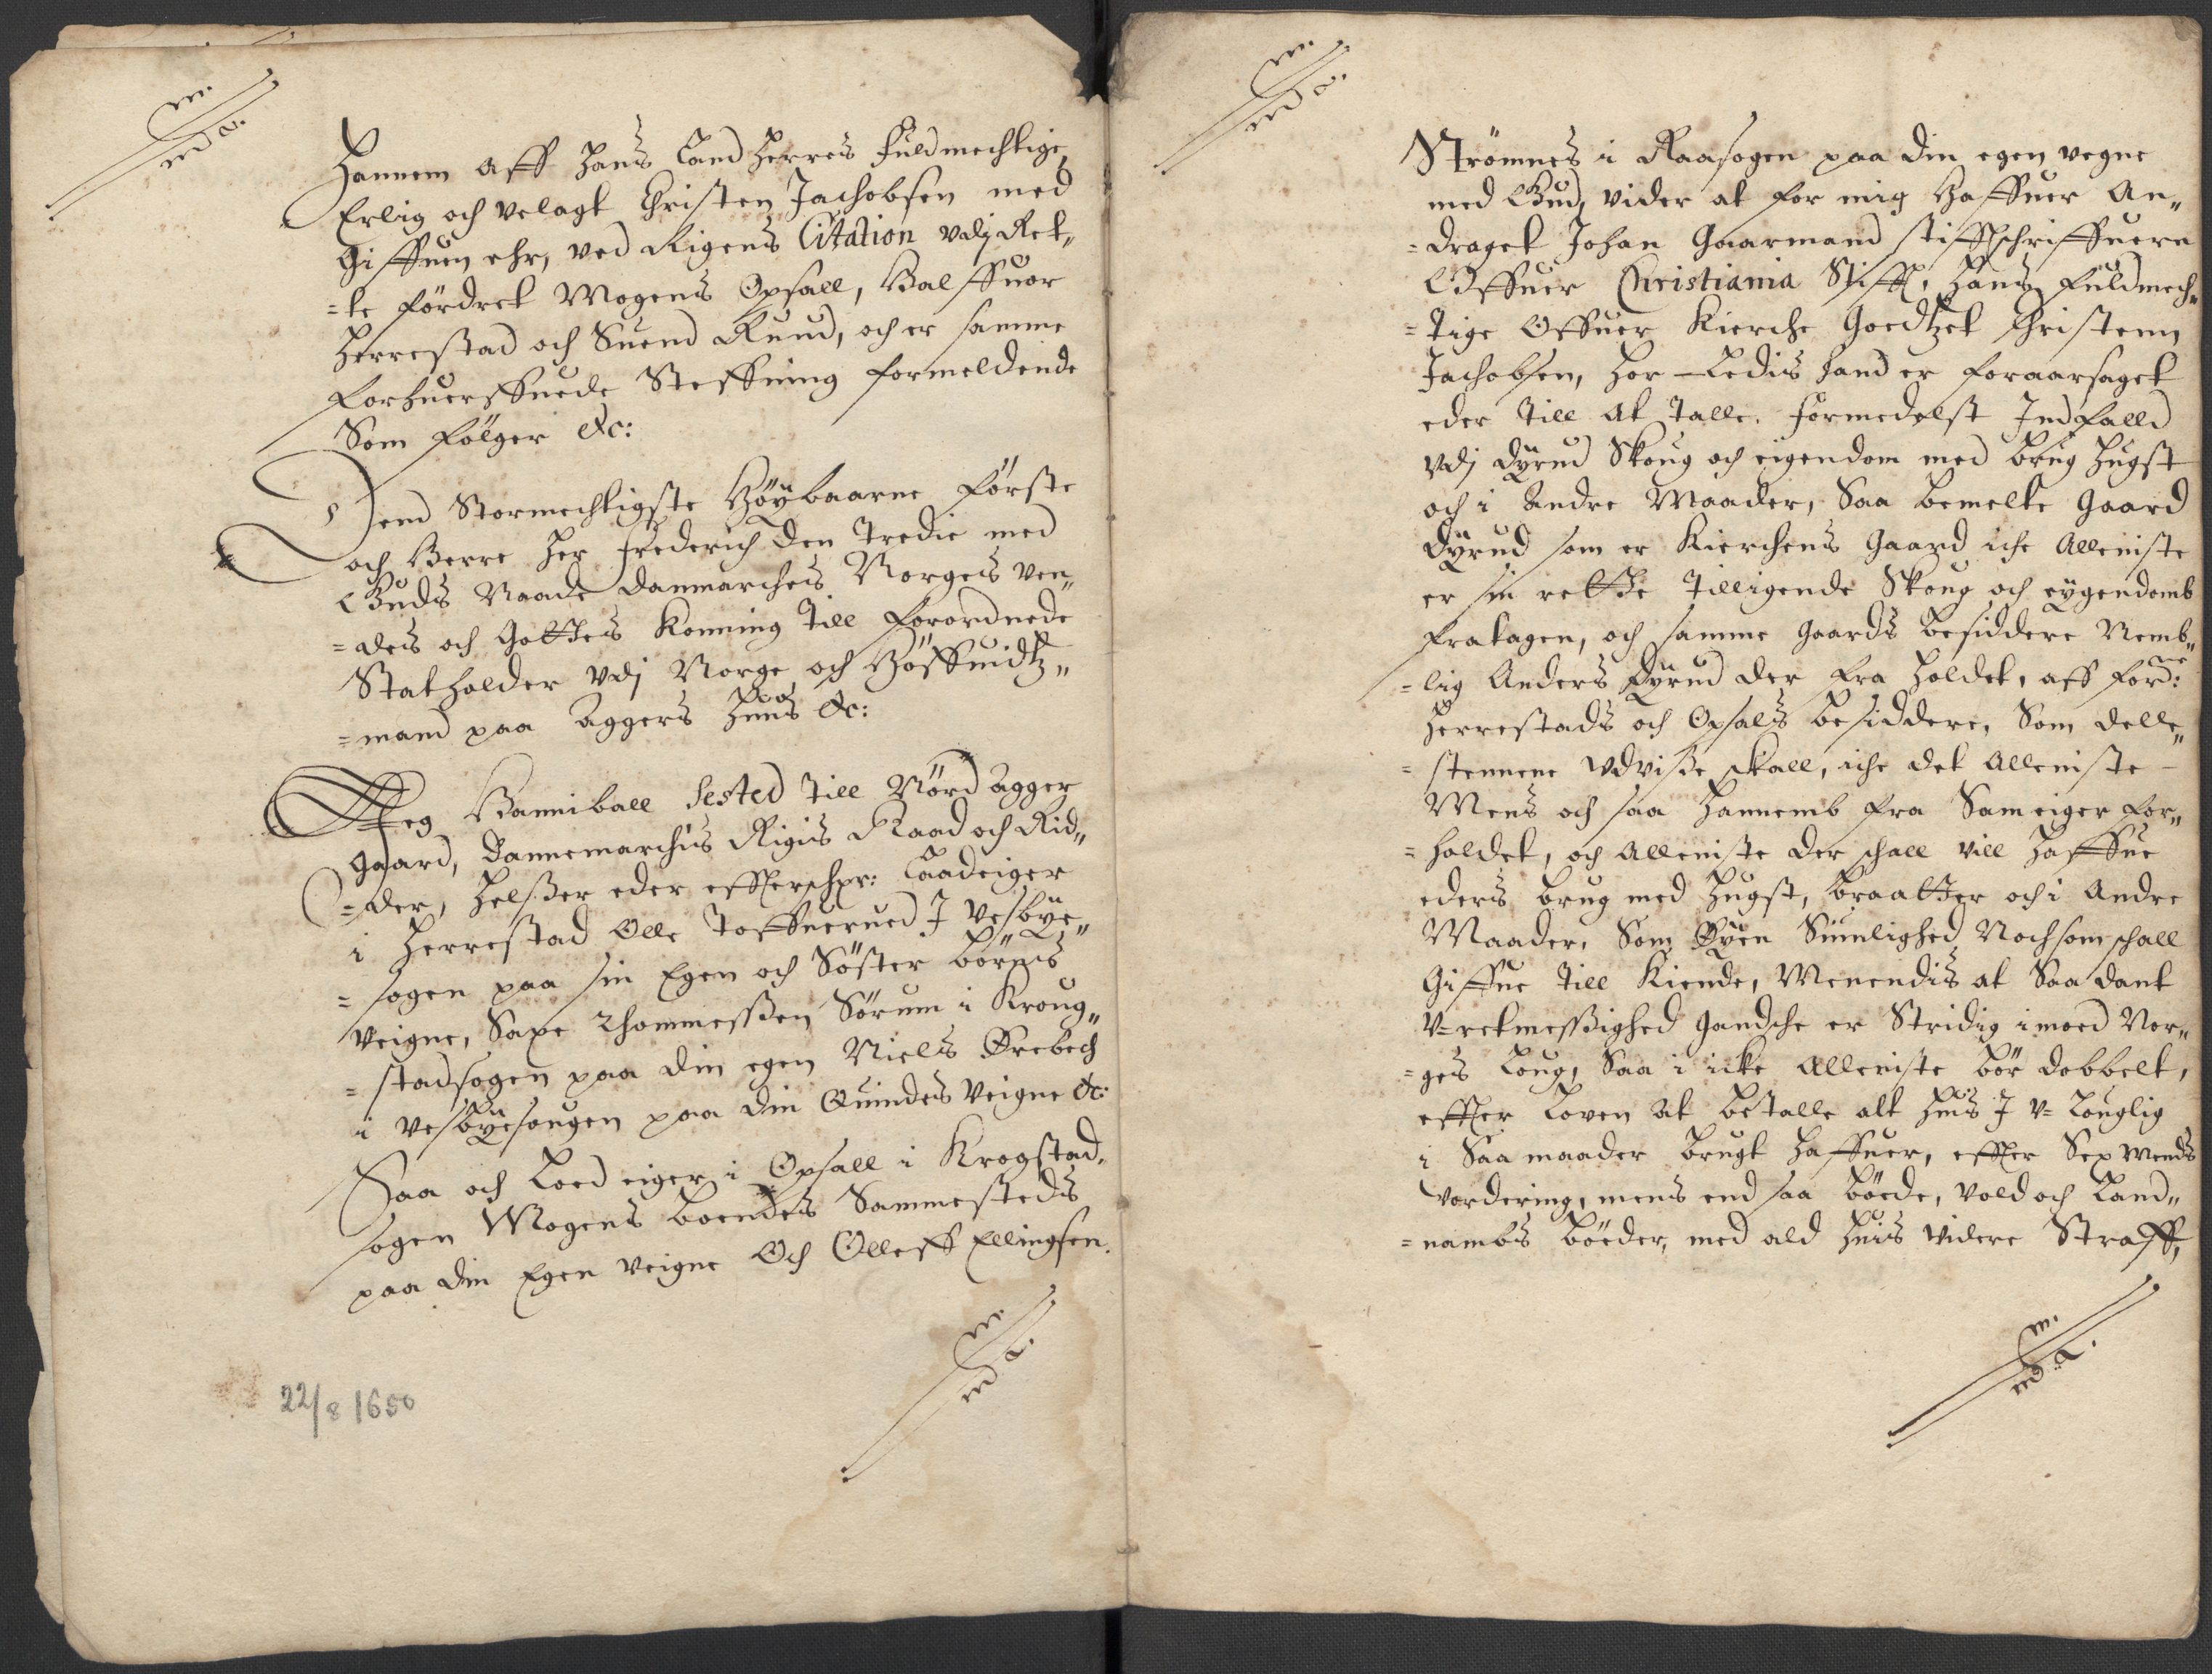 m.
md a.
Hannem aff hans Land Herres Fuldmechtige,
Erlig och velagt Christen Jachobsen med
Giffuen ehr, ved Rigens Citation vdj Ret„
=te fördret Mogens Opsall, Halffuor
Herrestad och Suend Ruud, och er samme
forhuerffuede Steffning formeldende
Som fölger etc:
Dend Stormechtigste Höybaarne Förste
och Herre Her Frederich den Tredie med
Guds Naade Danmarches Norges Ven„
=des och Gotthes Konning Till forordnede
Statholder vdj Norge, och Höffuidtz„
=mand paa Aggers Huus etc:
Jeg Hanniball Sested Till Nörd Agger
gaard, Dannemarchis Rigis Raad och Rid„
=der, Helsser eder effterschr: Laadeiger
i Herrestad Olle Toffuerued J Vesbye„
=sogen paa sin Egen och Söster börns
Veigne, Saxe Thommessen Sörum i Kroug„
=stadsogen paa din egen Niels Örebech
i Vesbyesougen paa din Quindes Veigne etc:
Saa och Loed eiger i Opsall i Krogstad,
sogen Mogens boendes Sammesteds
paa din Egen veigne Och Olleff Ellingsen.
m.
md a.
22/8 1650
m.
md a.
Strömnes i Raasogen paa din egen vegne
med Gud, vider at for mig Haffuer An„
=draget Johan Gaarmand stifftschriffuere
Offuer Christiania Stifft, Hans Fuldmech„
=tige Offuer Kierche Goedtzet Christenn
Jachobsen, Hor-Ledis hand er foraarsaget
eder Till at Talle. Formedelst Indfalld
vdj Dyrud Skoug och eigendom med brug Hugst
och i Andre Maader, Saa bemelte Gaard
Dyrud som er Kierchens Gaard iche Alleniste
er sin retthe Tilligende Skoug och eygendomb
fratagen, och samme Gaards besiddere Nemb„
=lig Anders Dyrud der fra Holdet, aff forne:
Herrestads och Opsals besiddere, Som delle„
=stennene Vdvisse skall, iche det Alleniste -
Mens och saa Hannemb fra Sameiger for„
=holdet, och Alleniste der schall vill Haffue
eders brug med Hugst, braatther och i Andre
Maader, Som Öyen Siunlighed Nochsom schall
Giffue Till Kiende, Menendis at Saadant
V=retmessighed Gandsche er Stridig imoed Nor„
=ges Loug, Saa i icke Alleniste bör dobbelt,
effter Loven At betalle alt Huis J V= Louglig
i Saa maader brugt Haffuer, effter Sex Mends
Vordering, mens end saa böede, vold och Land„
=nambs böeder, med ald Huis videre Straff,
m.
md a.